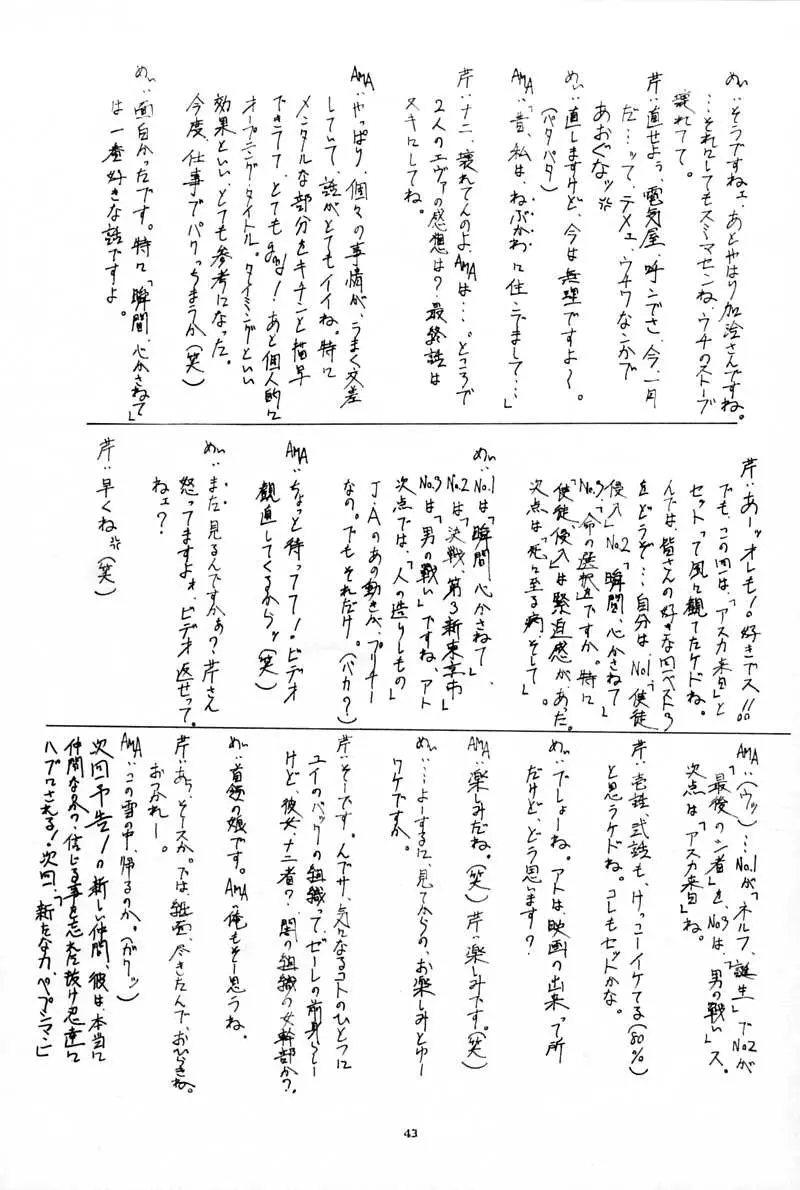 めい：そうですねェ、あとやはり加冶さんですね。
…それにしてもスミマセンね、ウチのストーブ
壊れてて。
芹：直せよぅ、電気屋、呼ンでさ、今、一月
だ…ッて、テメェ、ウチワなンかで
あおぐなッ
めい：直しますけど、今は無理ですよ〜。
（パタパタ）
AMA：「昔、私は、ねぶかわに住ンでまして…」
芹：ナニ、壊れてンのよAMAは…。ところで
2人のエヴァの感想は？最終話は
ヌキにしてね。
AMA：やっぱり、個々の事情が、うまく交差
していて、話がとてもイイね。特に
メンタルな部分をキチンと描写
できてて、とてもgood！あと個人的に
オープニング・タイトル。タイミングといい
効果といい、とても参考になった。
今度、仕事でパクっちまうか（笑）
めい：面白かったです。特に「瞬間、心かさねて」
は一番好きな話ですよ。
芹：あーッオレも！好きでス!!
でも、この回は、「アスカ来日」と
セットって風に観てたケドね。
んでは、皆さんの好きな回ベスト3
をどうぞ…自分は、No.1「使徒
侵入」No.2「瞬間、心かさねて」
No.3「命の選択を」ですか。特に
「使徒侵入」は緊迫感があった。
次点は「死に至る病、そして」
めい：No.1は「瞬間、心かさねて」、
No.2は「決戦、第3新東京市」
No.3は「男の戦い」ですね、アト
次点では、「人の造りしもの」
J・Aのあの動きが、プリチー
なの。でもそれだけ。（バカ？）
AMA：ちょっと待ってて！ビデオ
観直してくるからッ（笑）
めい：まだ見るんですかぁ？芹さん
怒ってますよォ、ビデオ返せって。
ねェ？
芹：早くね（笑）
AMA：（ウッ）…No.1が「ネルフ、誕生」でNo.2が
「最後のシ者」を、No.3は、「男の戦い」ス。
次点は「アスカ来日」ね。
芹：壱話、弐話も、けっこーイケてる（80%）
と思うケドね。コレもセットかな。
めい：でしょーね。アトは、映画の出来って所
だけど、どう思います？
AMA：楽しみだね。（笑）芹：楽しみです。（笑）
めい：…よーするに、見てからの、お楽しみとゆー
ワケですか。
芹：そーです。んでサ、気になるコトのひとつに
ユイのバックの組織って、ゼーレの前身らしー
けど、彼女、ナニ者？闇の組織の女幹部か？
めい：首領の娘です。AMA：俺もそー思うね。
芹：あっ、そースか。では、紙面、尽きたんで、おひらきね。
おつかれー。
AMA：この雪の中、帰るのか。（ガクッ）
次回予告！の新しい仲間、彼は、本当に
仲間なのか、信じる事を忘れた抜け忍達に
ハブにされる！次回、「新たな力、ペプシマン」
43